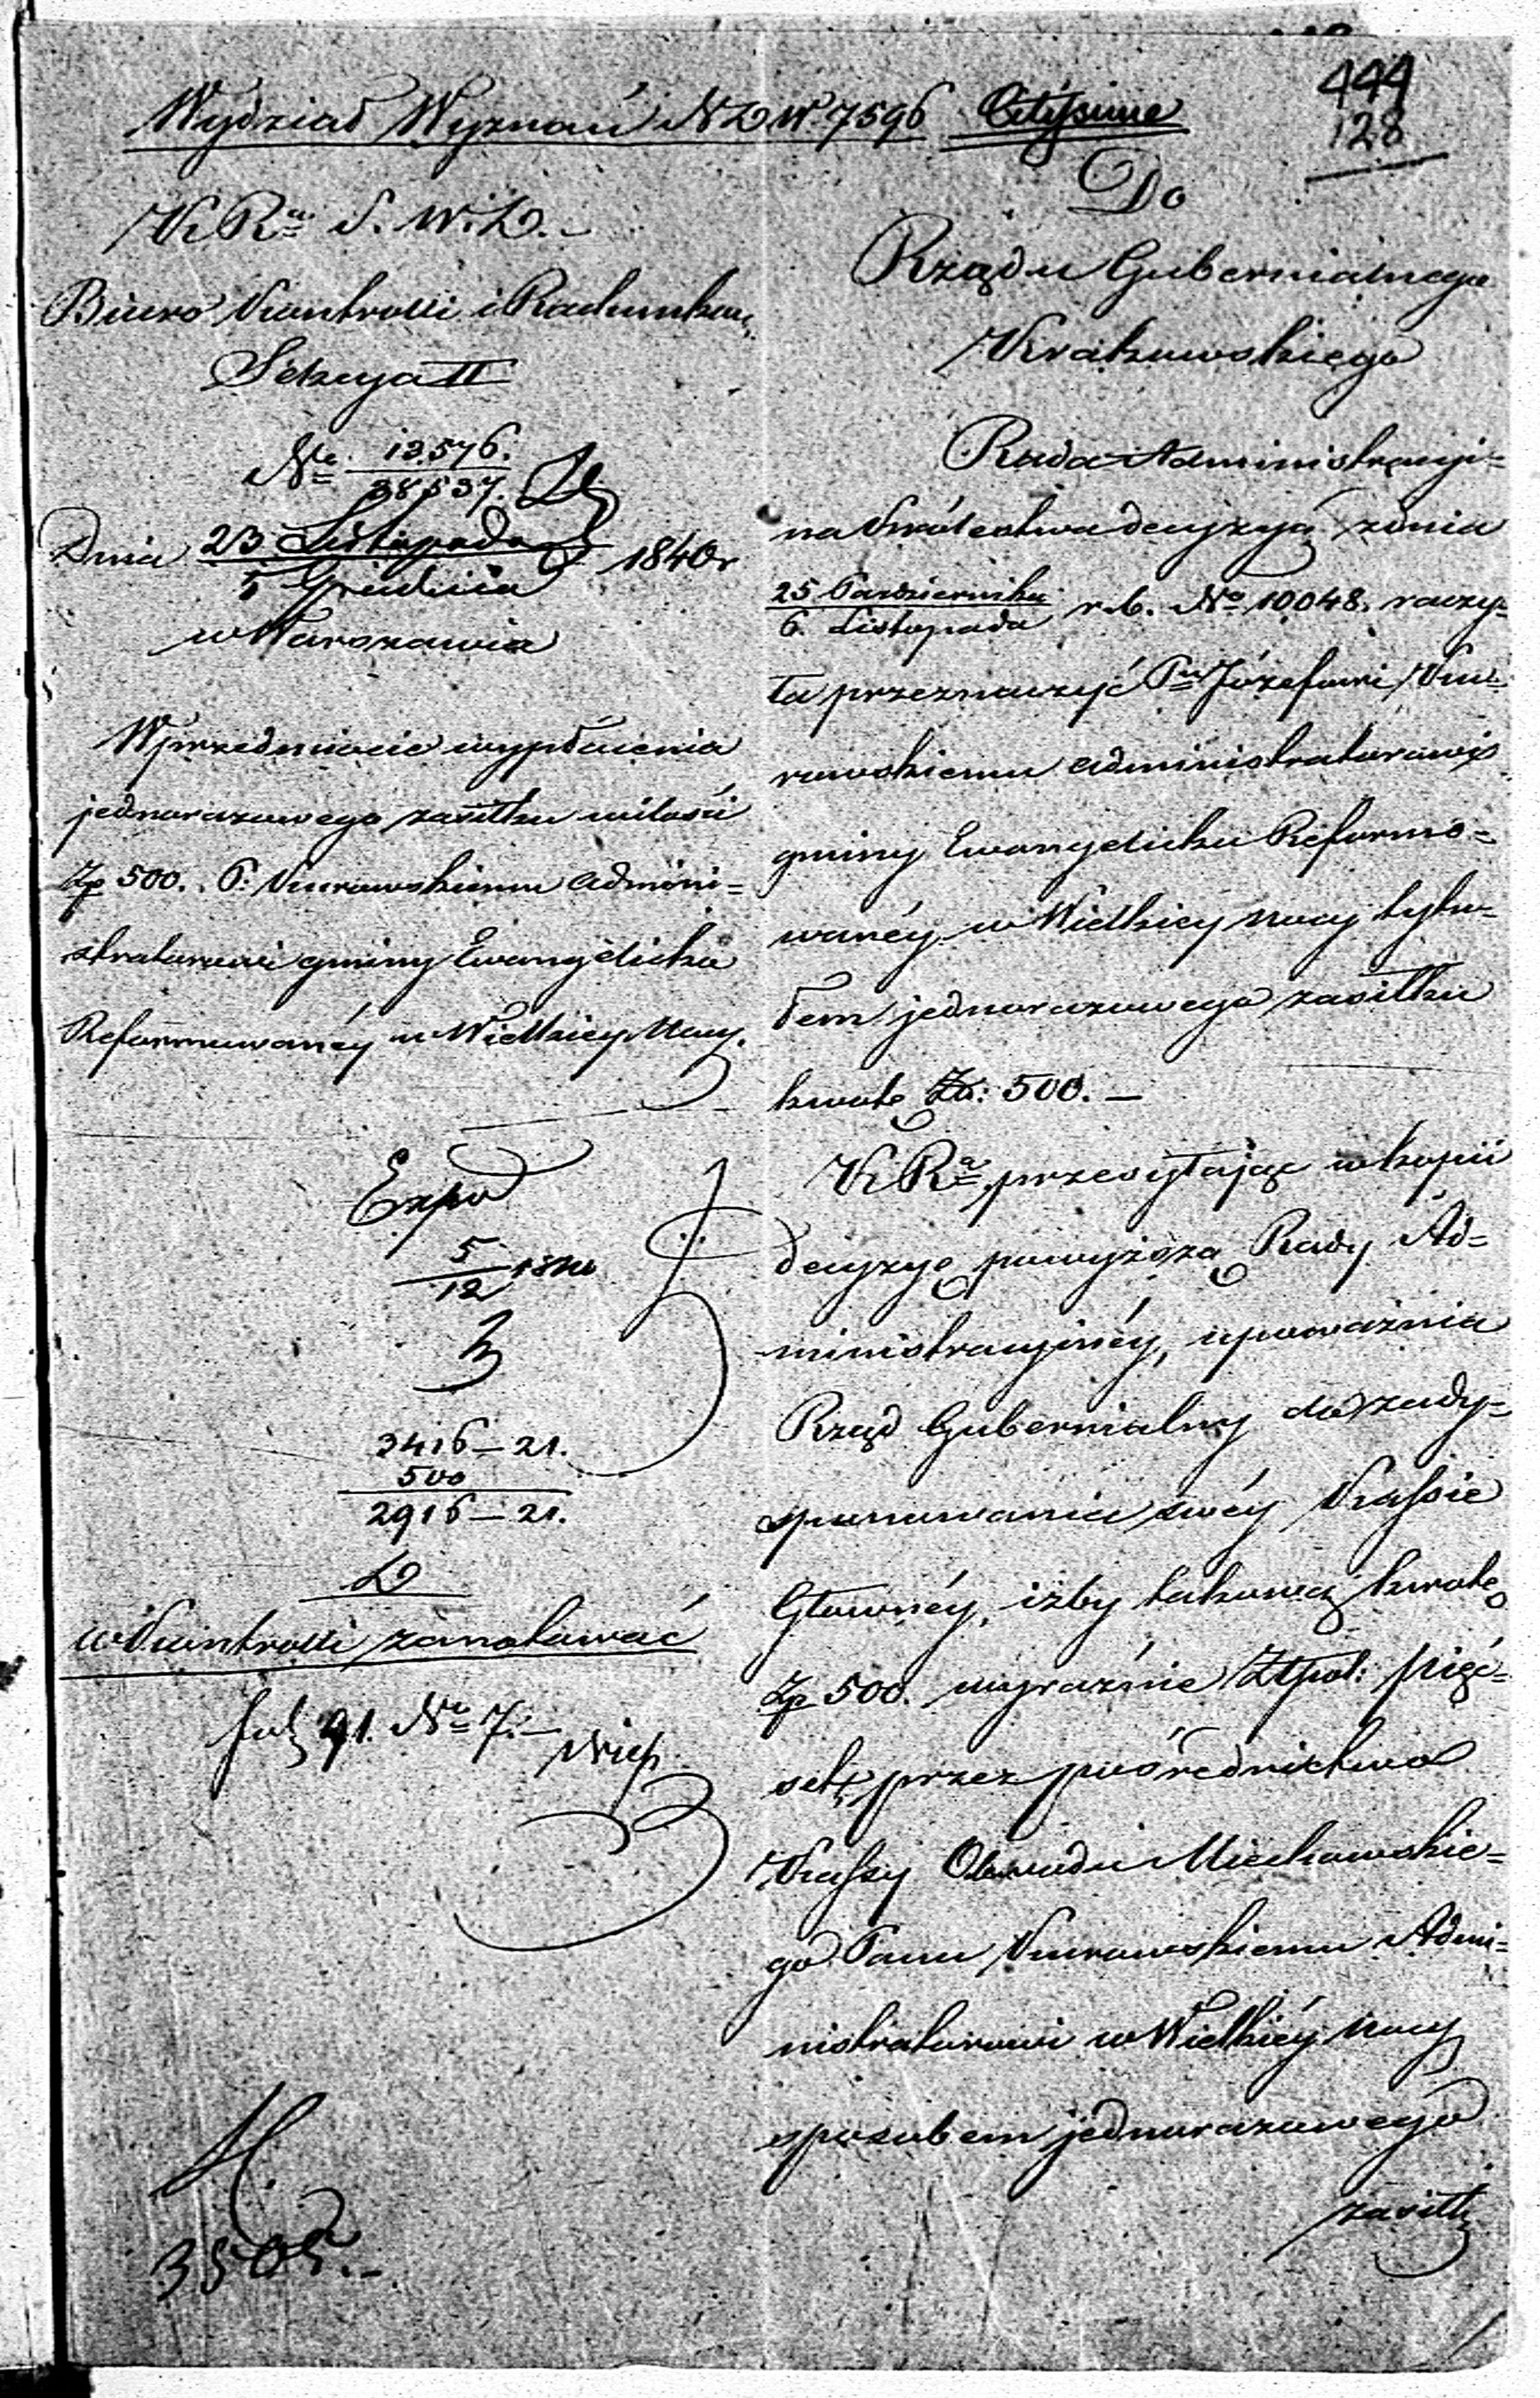 444
128
Wydział Wyznań N D W. 7596 Citissime
K Rª S. W. D. –
Biuro Kontrolli i Rachunków,
Sekcya II
Nº 12.576.
38537.
Dnia 23 Listopada
5 Grudnia 1840 r
w Warszawie
W przedmiocie wypłacenia
jednorazowego zasiłku w ilości
Zp 500. P: Kurowskiemu Admini=
stratorowi gminy Ewangelicko
Reformowanéy w Wielkiey Nocy.
Exped
5
12 1840
3416 – 21.
500
2916 – 21.
w Kontrolli zanotować
fol 91. Nº 7. –
3505. –
Do
Rządu Gubernialnego
Krakowskiego
Rada Administracyi=
na Królestwa decyzyą z dnia
25 Października
6. Listopada r. b. Nº 10048. raczy=
ła przeznaczyć Pu Józefowi Ku=
rowskiemu Administratorowi
gminy Ewangelicko Reformo=
wanéy w Wielkiey Nocy tytu=
łem jednorazowego zasiłku
kwotę Zp: 500. –
K Rª przesyłając w kopii
decyzyę powyższą Rady Ad=
ministracyinéy, upoważnia
Rząd Gubernialny do zady=
sponowania swéy Kassie
Głownéy, iżby takową kwotę
Zp 500. wyraźnie Złpol: pięć=
set, przez pośrednictwo
Kassy Obwodu Miechowskie=
go Panu Kurowskiemu Admi=
nistratorowi w Wielkiéy Nocy
sposobem jednorazowego
zasiłk